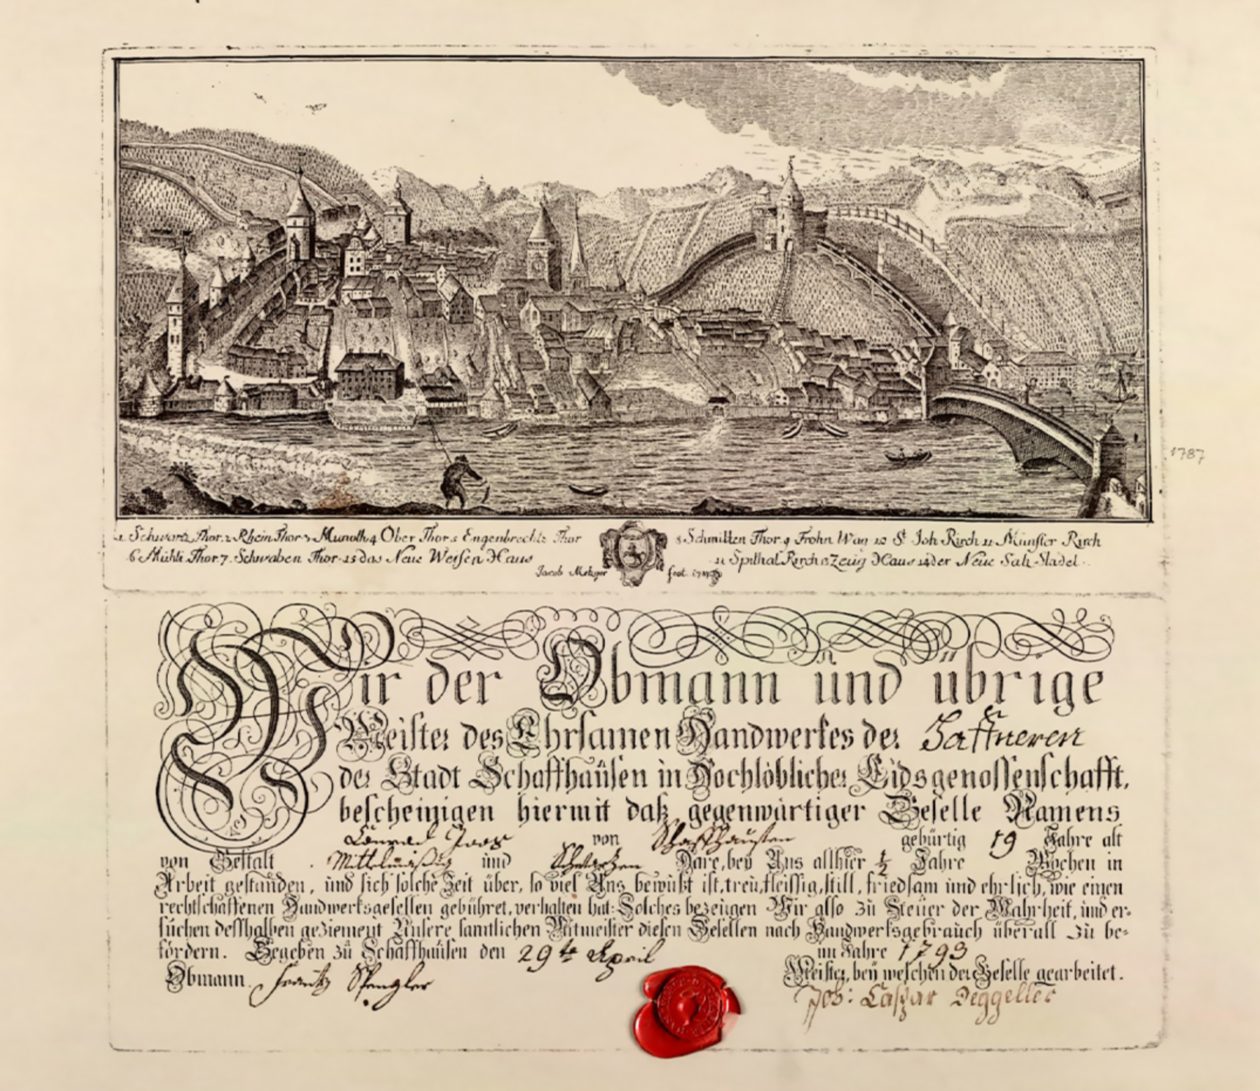 1787
1 Schwartz Thor. 2 Rhein Thor 3 Munoth 4 Ober Thor. 5 Engenbrecht: Thor 8 Schmitten Thor. 9 Frohn Wag 10 St Joh Kirch 11 Münster Kirch
6 Mühli Thor 7. Schwaben Thor. 15 das Neue Weisen Haus 12 Spithal Kirch 13 Zeug Haus 14 der Neüe Saltz Stadel.
Jacob Metzger fect.
Wir der Obmann und übrige
Meister des Ehrsamen Handwerkes der Sattneren
der Stadt Schaffhausen in Hochlöblicher Eidsgenossenschafft,
bescheinigen hiermit daß gegenwärtiger Geselle Namens
Conrad von Schaffhausen gebürtig 19 Jahre alt
von Gestalt und Haare, bey Uns allhier ½ Jahre Wochen in
Arbeit gestanden, und sich solche Zeit über, so viel Uns bewußt ist, treu, fleissig, still, friedsam und ehrlich, wie einen
rechtschaffenen Handwerksgesellen gebühret, verhalten hat: Solches bezeugen Wir also zu Steuer der Wahrheit, und er-
suchen desshalben geziement Unsere samtlichen Mitmeister diesen Gesellen nach Handwerksgebrauch überall zu be-
fördern. Gegeben zu Schaffhausen den 29te April im Jahre 1793
Obmann Spengler Meister, bey welchen der Geselle gearbeitet.
Joh: Caspar Deggeller